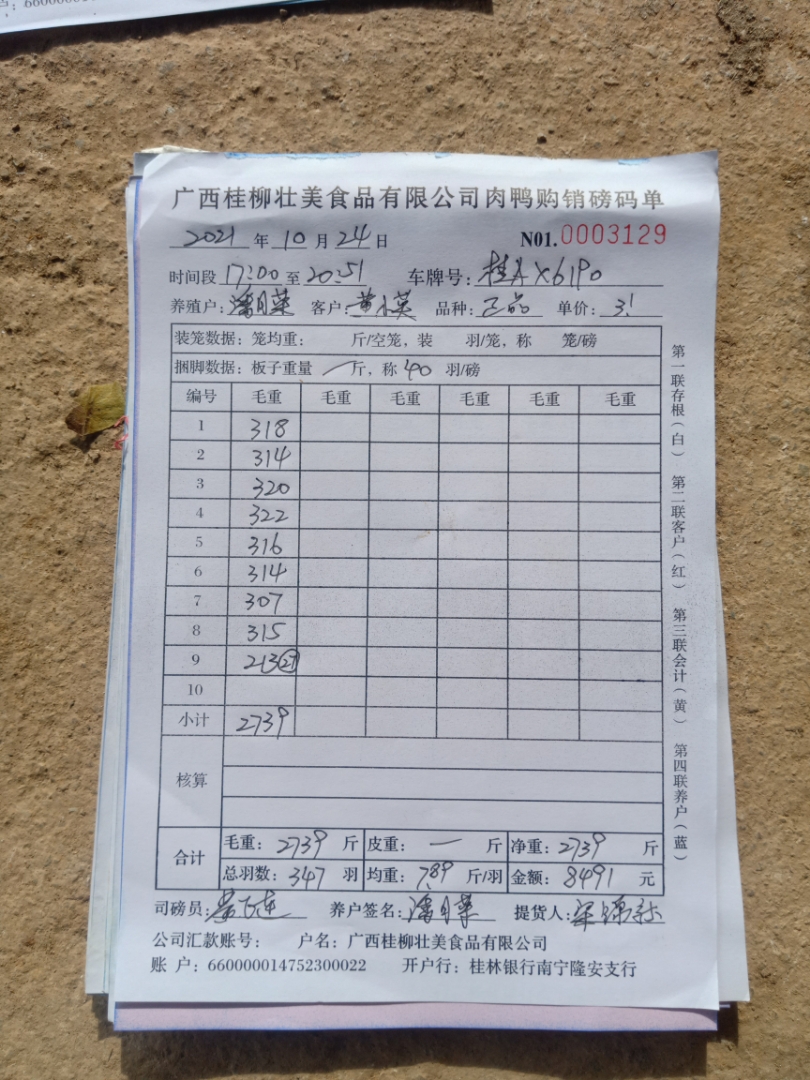 广西桂柳壮美食品有限公司肉鸭购销磅码单
2021 年 10 月 24 日 N01.0003129
时间段 17:00 至 20:51 车牌号: 桂A X6190
养殖户: 潘月菜 客户: 黄小英 品种: 正品 单价: 3.1
装笼数据: 笼均重: 斤/空笼, 装 羽/笼, 称 笼/磅
捆脚数据: 板子重量 一 斤, 称 40 羽/磅
编号 毛重 毛重 毛重 毛重 毛重 毛重
1 318
2 314
3 320
4 322
5 316
6 314
7 307
8 315
9 213 27
10
小计 2739
核算
合计 毛重: 2739 斤 皮重: 一 斤 净重: 2739 斤
总羽数: 347 羽 均重: 7.89 斤/羽 金额: 8491 元
司磅员: 养户签名: 潘月菜 提货人:
公司汇款账号: 户名: 广西桂柳壮美食品有限公司
账 户: 660000014752300022 开户行: 桂林银行南宁隆安支行
第一联存根(白) 第二联客户(红) 第三联会计(黄) 第四联养户(蓝)